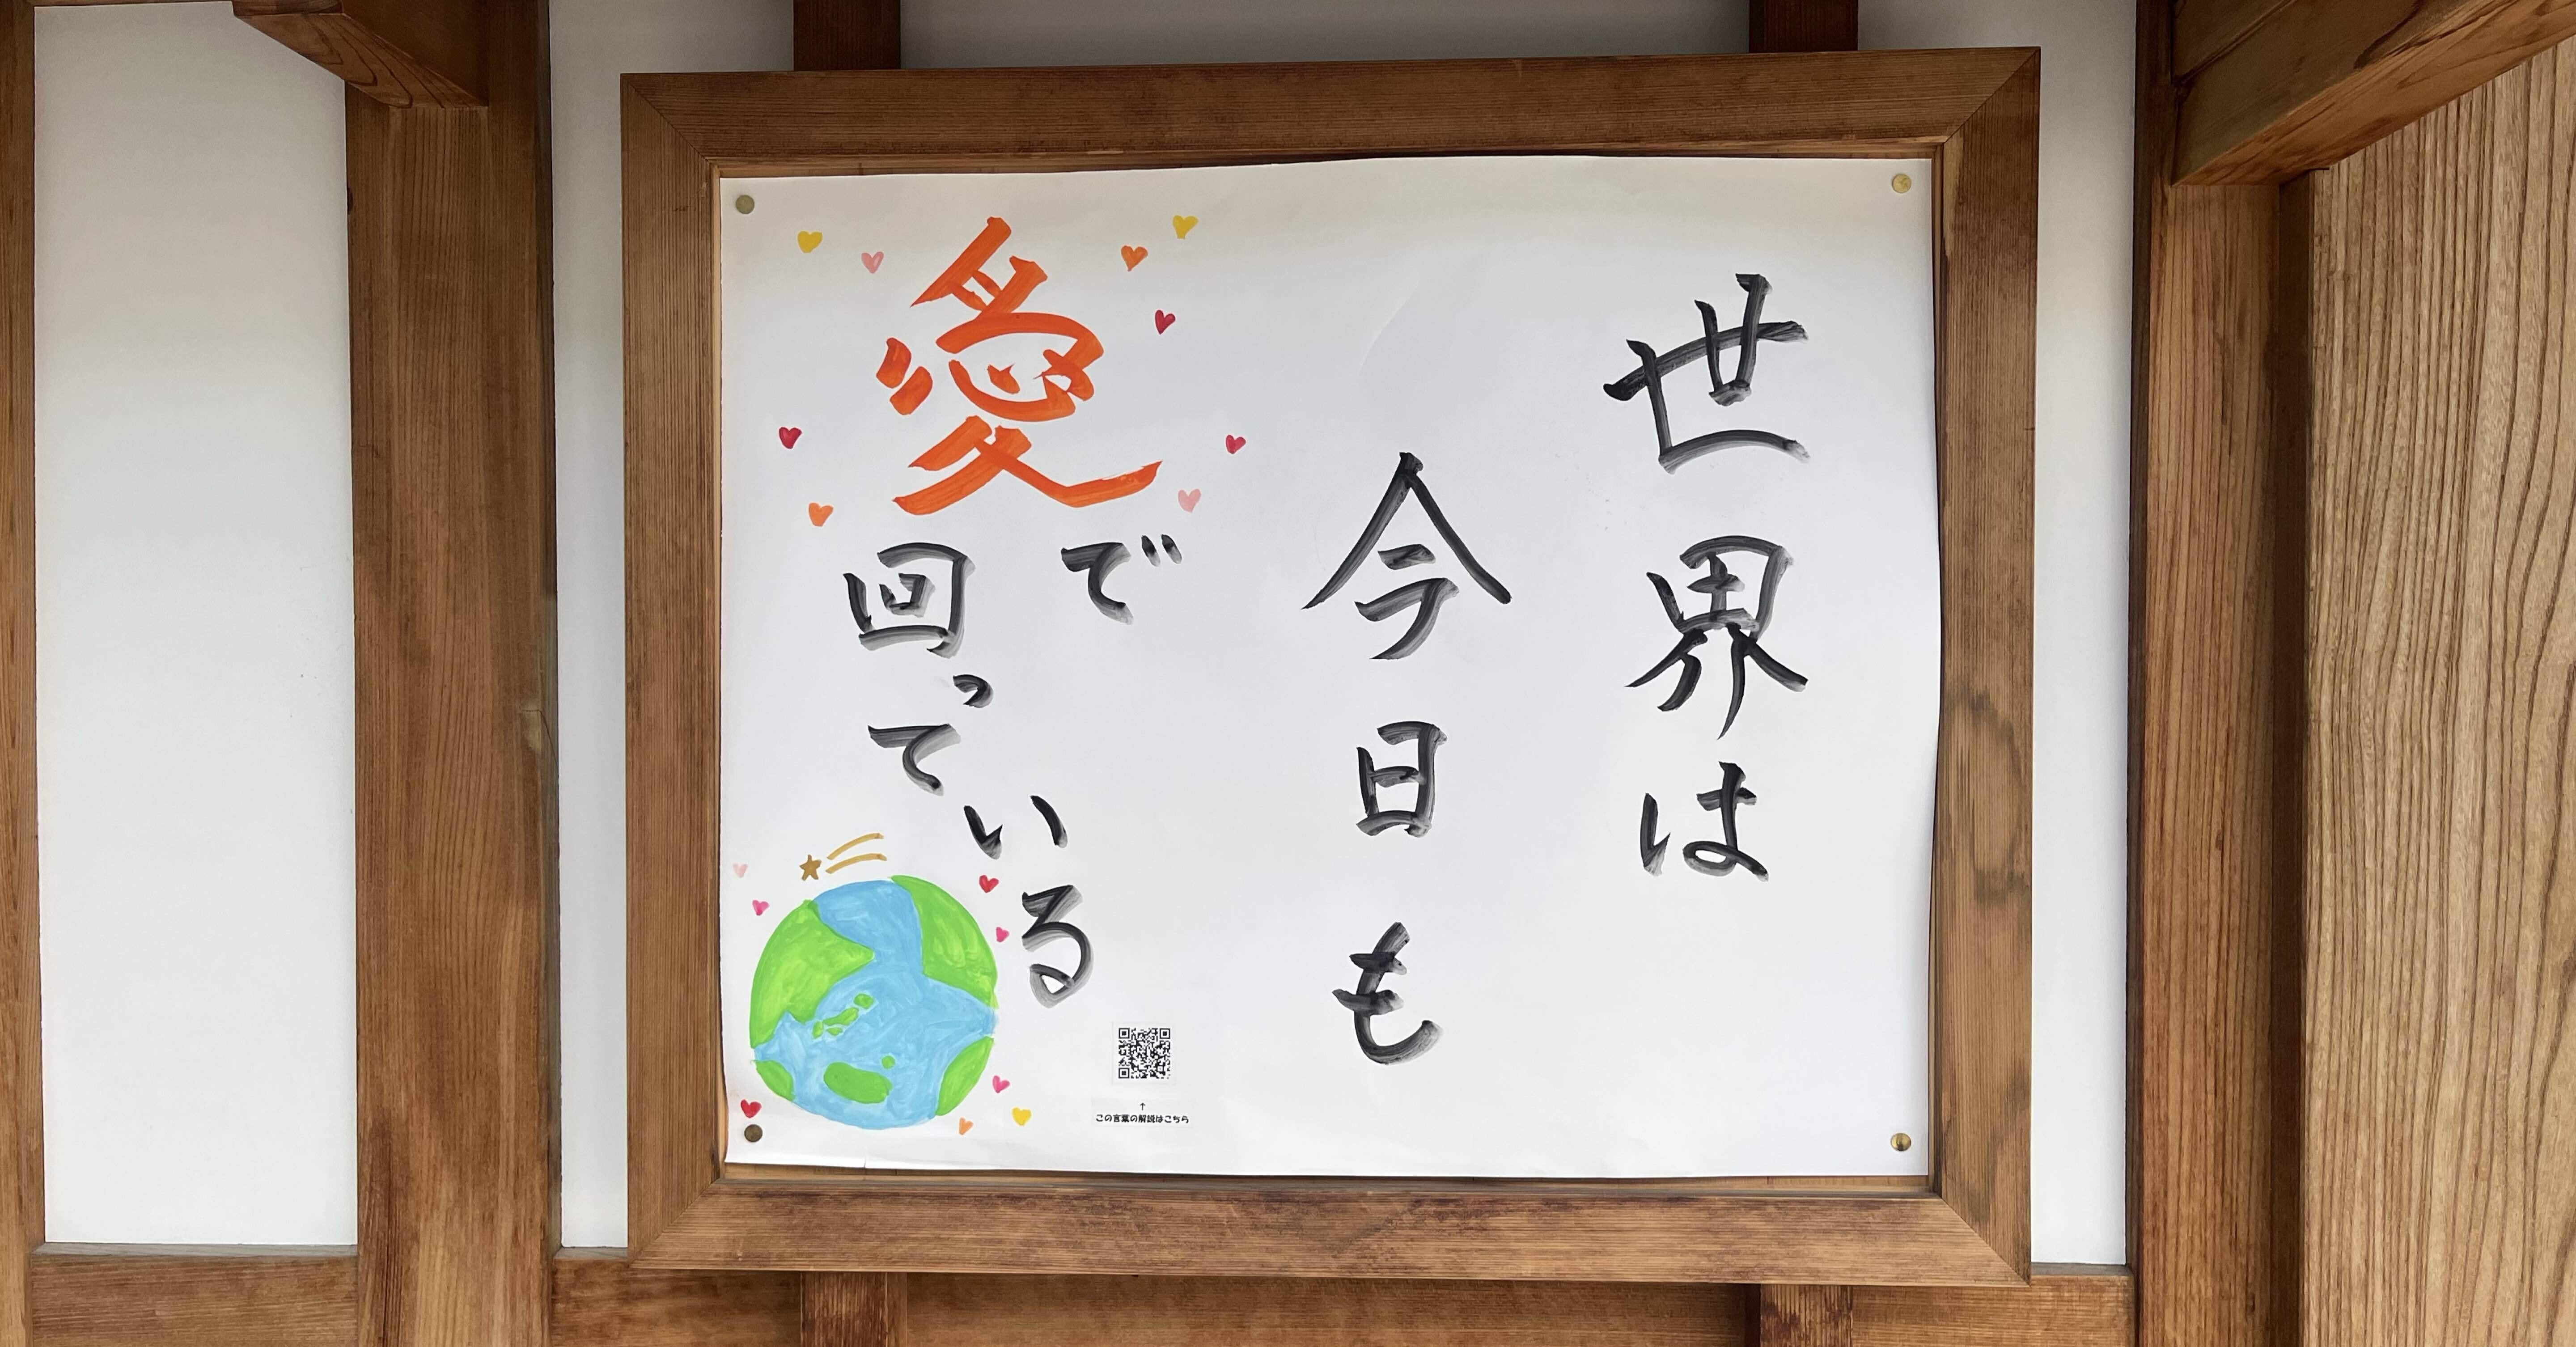 世界は
今日も
愛で
回っている
↑
この言葉の解説はこちら